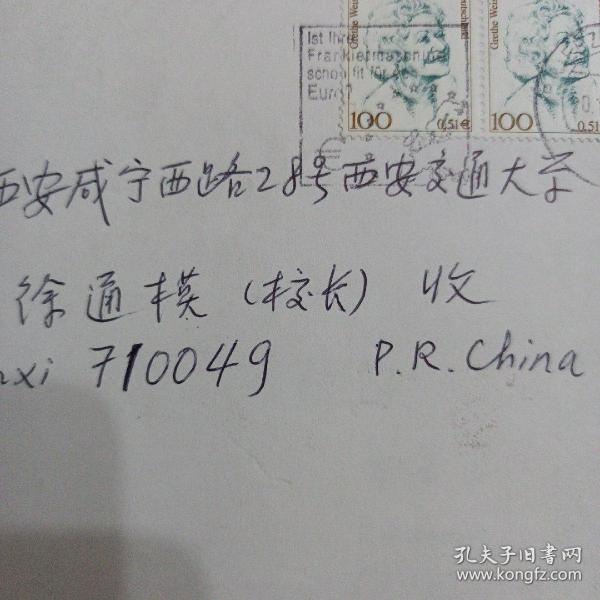 Grethe Wei
Grethe Wei
Ist Ihre
Frankiermaschine
schon fit für den
Euro?
100 0,51€
100 0,51€
西安咸宁西路28号西安交通大学
徐通模（校长） 收
nxi 710049 P.R.China
孔夫子旧书网
www.kongfz.com